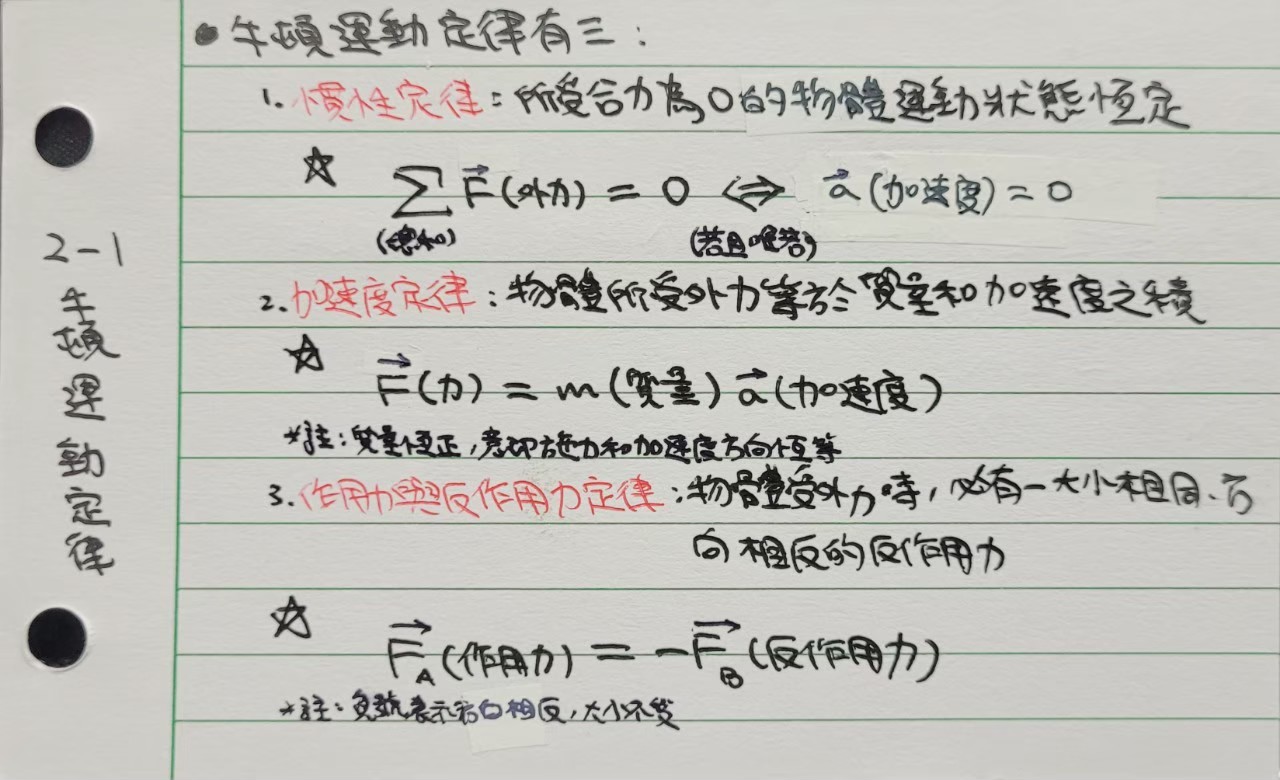 2-1 牛頓運動定律
• 牛頓運動定律有三：
1. 慣性定律：所受合力為0的物體運動狀態恆定
☆ ∑(總和) F⃗(外力) = 0 ⟺(若且唯若) a⃗(加速度) = 0
2. 加速度定律：物體所受外力等於質量和加速度之積
☆ F⃗(力) = m(質量) a⃗(加速度)
*註：質量恆正，意即施力和加速度方向恆等
3. 作用力與反作用力定律：物體受外力時，必有一大小相同、方
向相反的反作用力
☆ F⃗_A(作用力) = -F⃗_B(反作用力)
*註：負號表示方向相反，大小不變